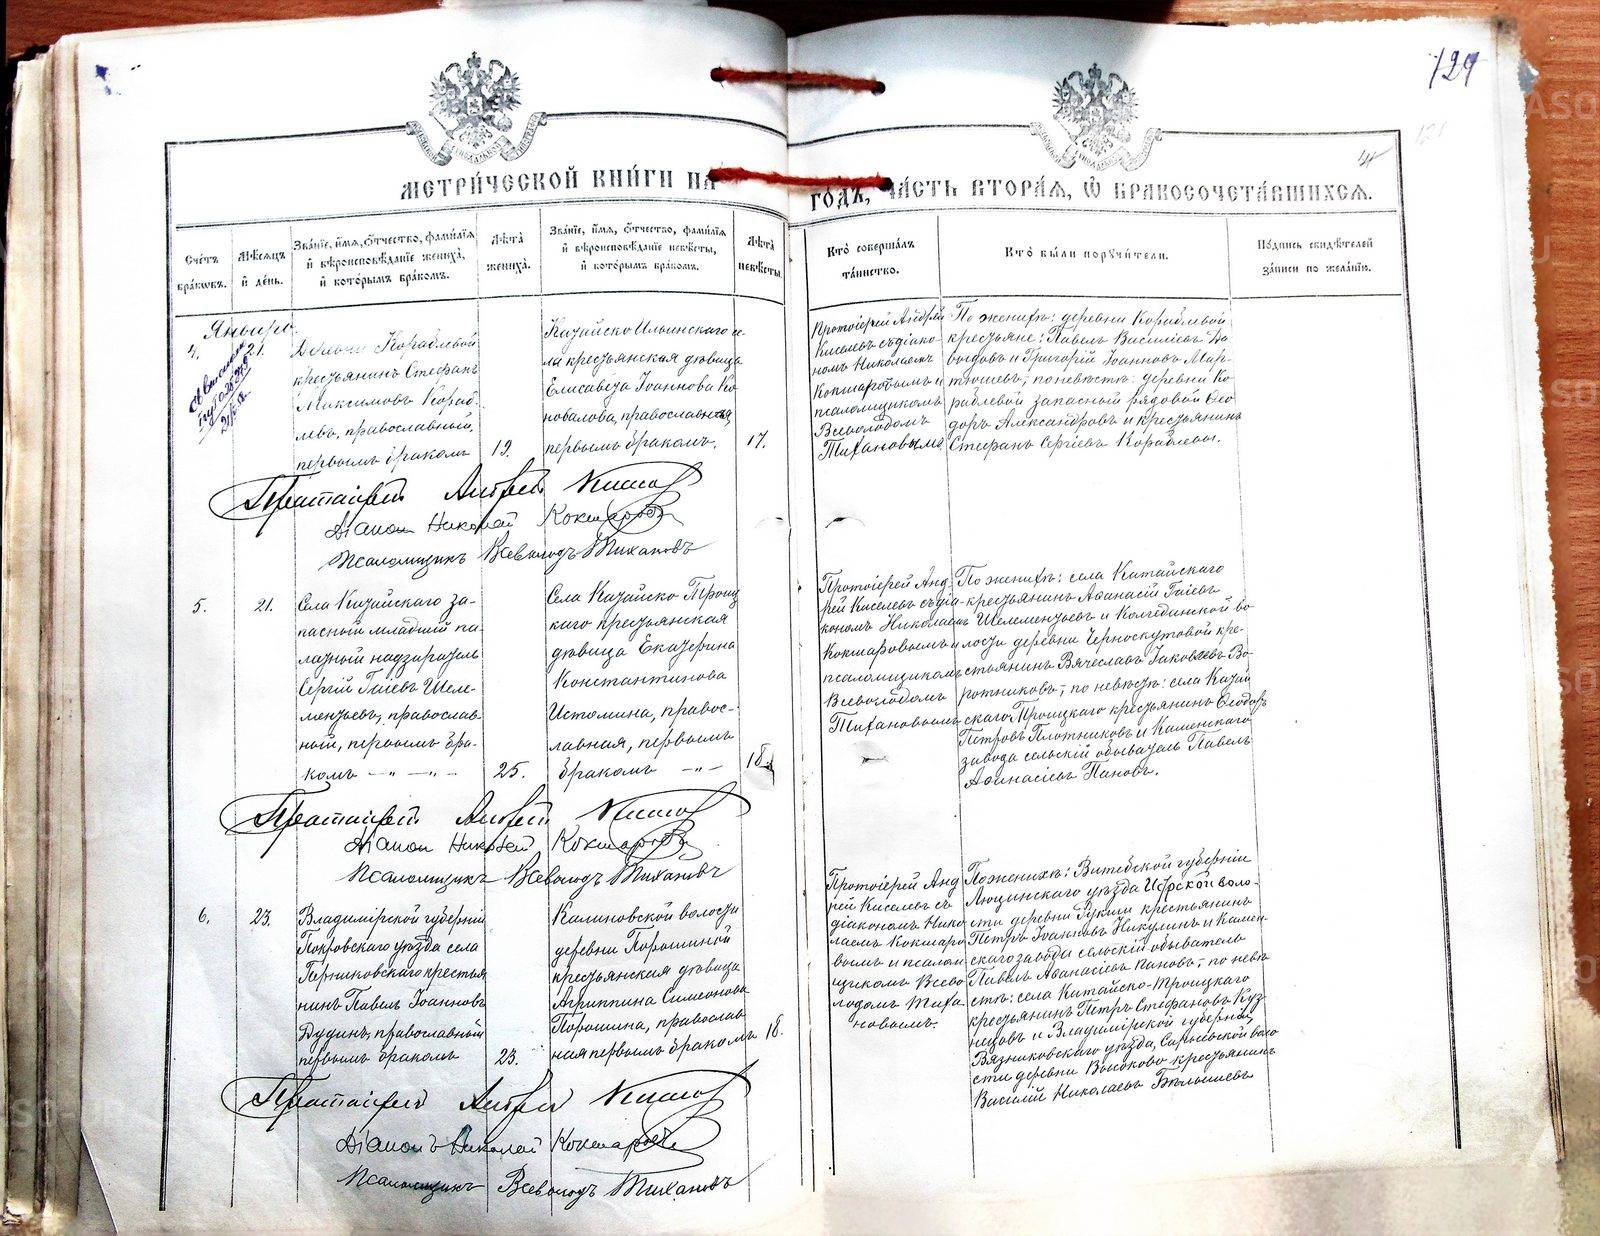 129
МЕТРИЧЕСКОЙ КНИГИ НА
ГОДЪ, ЧАСТЬ ВТОРАЯ, Ѡ БРАКОСОЧЕТАВШИХСЯ.
Счетъ браковъ.
Мѣсяцъ и день.
Званіе, имя, отчество, фамилія
и вѣроисповѣданіе жениха,
и которымъ бракомъ.
Лѣта
жениха.
Званіе, имя, отчество, фамилія
и вѣроисповѣданіе невѣсты,
и которымъ бракомъ.
Лѣта
невѣсты.
Кто совершалъ
таинство.
Кто были поручители.
Подпись свидѣтелей
записи по желанію.
Январь
4.
21.
Деревни Кораблевой
крестьянинъ Стефанъ
Максимовъ Кораб-
левъ, православный,
первымъ бракомъ
19.
Катайско Ильинскаго се-
ла крестьянская дѣвица
Елисавета Іоаннова Ко
новалова, православная
первымъ бракомъ.
17.
Протоіерей Андрей
Киселевъ съ діако-
номъ Николаемъ
Кокшаровымъ и
псаломщикомъ
Всеволодомъ
Тихановымъ
По женихѣ: деревни Кораблевой
крестьяне: Павелъ Василіевъ Да
выдовъ и Григорій Іоанновъ Мар-
тюшевъ; по невѣстѣ: деревни Ко
раблевой запасный рядовой Ѳео
доръ Александровъ и крестьянинъ
Стефанъ Сергіевъ Кораблевы.
Протоіерей Андрей Киселев
Діаконъ Николай Кокшаровъ
Псаломщикъ Всеволодъ Тихановъ
5.
21.
Села Катайскаго за-
пасный младшій па-
латный надзиратель
Сергій Гаіевъ Шеле-
ментьевъ, православ
ный, первымъ бра-
комъ — „ — „ —
25.
Села Катайско Троиц
каго крестьянская
дѣвица Екатерина
Константинова
Истомина, правос-
лавная, первымъ
бракомъ — „ —
18.
Протоіерей Анд
рей Киселевъ съ діа-
кономъ Николаемъ
Кокшаровымъ и
псаломщикомъ
Всеволодомъ
Тихановымъ
По женихѣ: села Катайскаго
крестьянинъ Аѳанасій Гаіевъ
Шелементьевъ и Колчеданской во
лости деревни Черноскутовой кре-
стьянинъ Вячеславъ Іаковлевъ Во-
ротниковъ; по невѣстѣ: села Катай
скаго Троицкаго крестьянинъ Ѳеодоръ
Петровъ Плотниковъ и Каменскаго
завода сельскій обыватель Павелъ
Аѳанасіевъ Пановъ.
Протоіерей Андрей Киселев
Діаконъ Николай Кокшаровъ
Псаломщикъ Всеволодъ Тихановъ
6.
23.
Владимірской губерніи
Покровскаго уѣзда села
крестья
нинъ Павелъ Іоанновъ
Дудинъ, православный
первымъ бракомъ
23.
Калиновской волости
деревни Порошиной
крестьянская дѣвица
Агриппина Симеонова
Порошина, православ
ная первымъ бракомъ
18.
Протоіерей Анд
рей Киселевъ съ
діакономъ Нико
лаемъ Кокшаро
вымъ и псалом
щикомъ Всево
лодомъ Тиха
новымъ.
По женихѣ: Витебской губерніи
Люцинскаго уѣзда воло-
сти деревни крестьянинъ
Петръ Іоанновъ Никулинъ и Камен
скаго завода сельскій обыватель
Павелъ Аѳанасіевъ Пановъ; по невѣ
стѣ: села Катайско-Троицкаго
крестьянинъ Петръ Стефановъ Куз
нецовъ и Владимірской губерніи
Вязниковскаго уѣзда, Сарыевской воло
сти деревни Высоково крестьянинъ
Василій Николаевъ Бѣлышевъ
Протоіерей Андрей Киселев
Діаконъ Николай Кокшаровъ
Псаломщикъ Всеволодъ Тихановъ